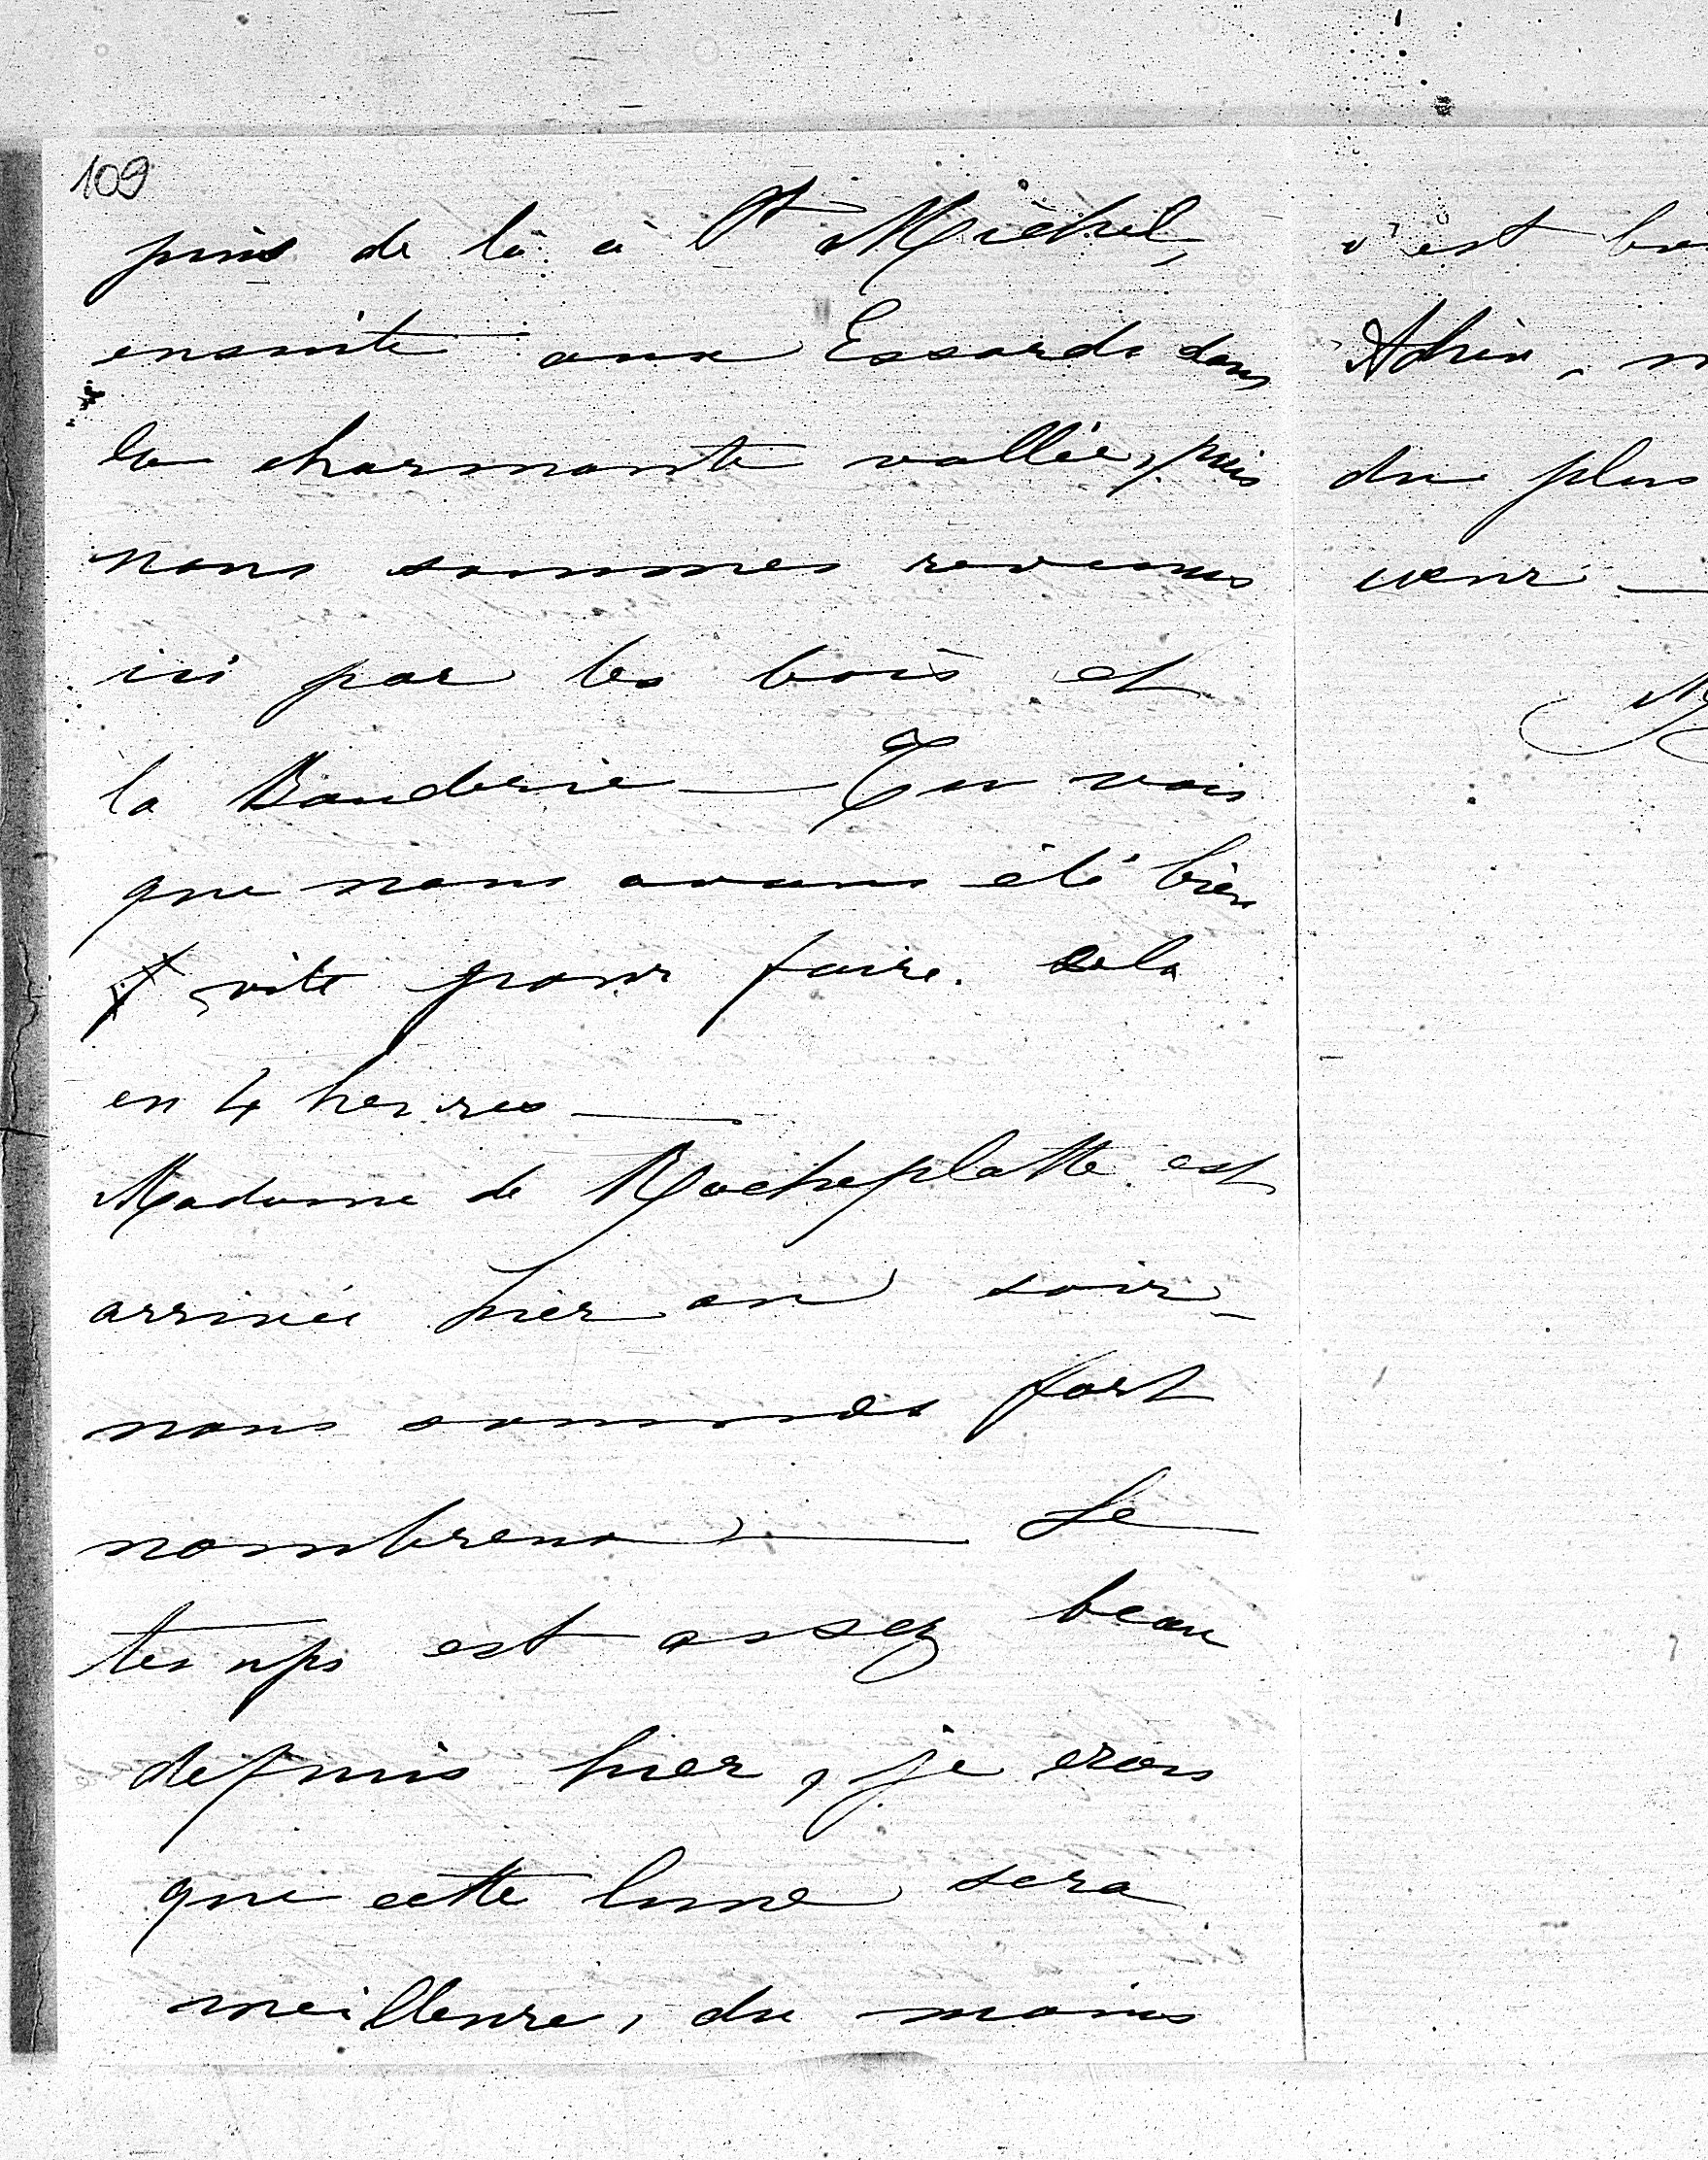 109
puis de là à St Michel,
ensuite aux Essards dans
la charmante vallée, puis
nous sommes revenus
ici par les bois et
la Bauderie — Tu vois
que nous avons été bien
vite pour faire cela
en 4 heures —
Madame de Rocheplatte est
arrivée hier au soir -
nous sommes fort
nombreux — Le
temps est assez beau
depuis hier, je crois
que cette lune sera
meilleure, du moins
c'est
Adieu,
du plus
cœur —